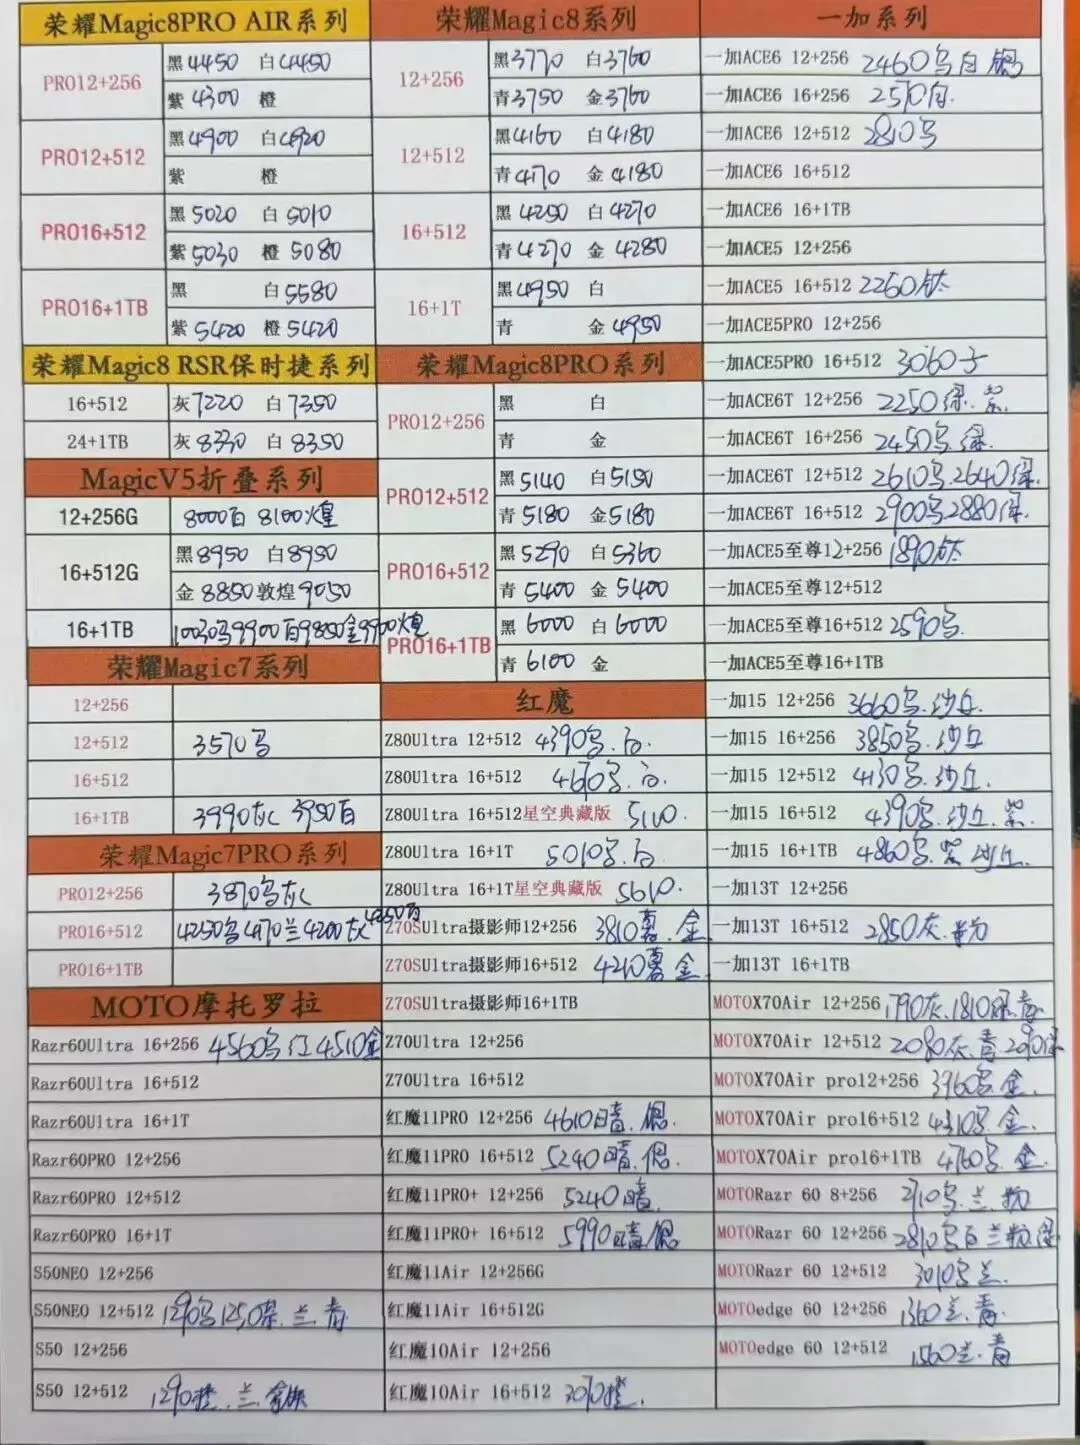 荣耀Magic8PRO AIR系列
PRO12+256 黑4450 白4450
紫4300 橙
PRO12+512 黑4900 白4920
紫 橙
PRO16+512 黑5020 白5010
紫5030 橙5080
PRO16+1TB 黑 白5580
紫5420 橙5420
荣耀Magic8 RSR保时捷系列
16+512 灰7220 白7350
24+1TB 灰8330 白8350
MagicV5折叠系列
12+256G 8000白 8100煌
16+512G 黑8950 白8950
金8850 敦煌9050
16+1TB 10030乌9900白9850金9900煌
荣耀Magic7系列
12+256
12+512 3570乌
16+512
16+1TB 3990灰 3950白
荣耀Magic7PRO系列
PRO12+256 3870乌灰
PRO16+512 4250乌4170兰4200灰4250白
PRO16+1TB
MOTO摩托罗拉
Razr60Ultra 16+256 4560乌红4510金
Razr60Ultra 16+512
Razr60Ultra 16+1T
Razr60PRO 12+256
Razr60PRO 12+512
Razr60PRO 16+1T
S50NEO 12+256
S50NEO 12+512 1290乌1250 兰.青
S50 12+256
S50 12+512 1290橙.兰.
荣耀Magic8系列
12+256 黑3770 白3760
青3750 金3760
12+512 黑4160 白4180
青4170 金4180
16+512 黑4250 白4270
青4270 金4280
16+1T 黑4950 白
青 金4950
荣耀Magic8PRO系列
PRO12+256 黑 白
青 金
PRO12+512 黑5140 白5150
青5180 金5180
PRO16+512 黑5290 白5360
青5400 金5400
PRO16+1TB 黑6000 白6000
青6100 金
红魔
Z80Ultra 12+512 4390乌.白.
Z80Ultra 16+512 4670乌.白.
Z80Ultra 16+512星空典藏版 5110.
Z80Ultra 16+1T 5010乌.白
Z80Ultra 16+1T星空典藏版 5610.
Z70SUltra摄影师12+256 3810 金
Z70SUltra摄影师16+512 4210 金
Z70SUltra摄影师16+1TB
Z70Ultra 12+256
Z70Ultra 16+512
红魔11PRO 12+256 4610暗.银.
红魔11PRO 16+512 5240暗.银.
红魔11PRO+ 12+256 5240暗.
红魔11PRO+ 16+512 5990暗.银
红魔11Air 12+256G
红魔11Air 16+512G
红魔10Air 12+256
红魔10Air 16+512 3070橙.
一加系列
一加ACE6 12+256 2460乌白银
一加ACE6 16+256 2570白.
一加ACE6 12+512 2810乌
一加ACE6 16+512
一加ACE6 16+1TB
一加ACE5 12+256
一加ACE5 16+512 2260钛
一加ACE5PRO 12+256
一加ACE5PRO 16+512 3060
一加ACE6T 12+256 2250绿.紫
一加ACE6T 16+256 2450乌.绿.
一加ACE6T 12+512 2610乌.2640绿.
一加ACE6T 16+512 2900乌.2880绿.
一加ACE5至尊12+256 1890钛
一加ACE5至尊12+512
一加ACE5至尊16+512 2590乌.
一加ACE5至尊16+1TB
一加15 12+256 3660乌.沙丘.
一加15 16+256 3850乌.沙丘
一加15 12+512 4130乌.沙丘.
一加15 16+512 4390乌.沙丘.紫.
一加15 16+1TB 4860乌.紫 沙丘.
一加13T 12+256
一加13T 16+512 2850灰.粉
一加13T 16+1TB
MOTOX70Air 12+256 1790灰.1810绿.青
MOTOX70Air 12+512 2080灰.青2090绿
MOTOX70Air pro12+256 3960乌.金.
MOTOX70Air pro16+512 4310乌.金.
MOTOX70Air pro16+1TB 4760乌.金.
MOTORazr 60 8+256 2710乌.兰.粉
MOTORazr 60 12+256 2810乌白兰粉绿
MOTORazr 60 12+512 3010乌兰.
MOTOedge 60 12+256 1360兰.青.
MOTOedge 60 12+512 1560兰.青